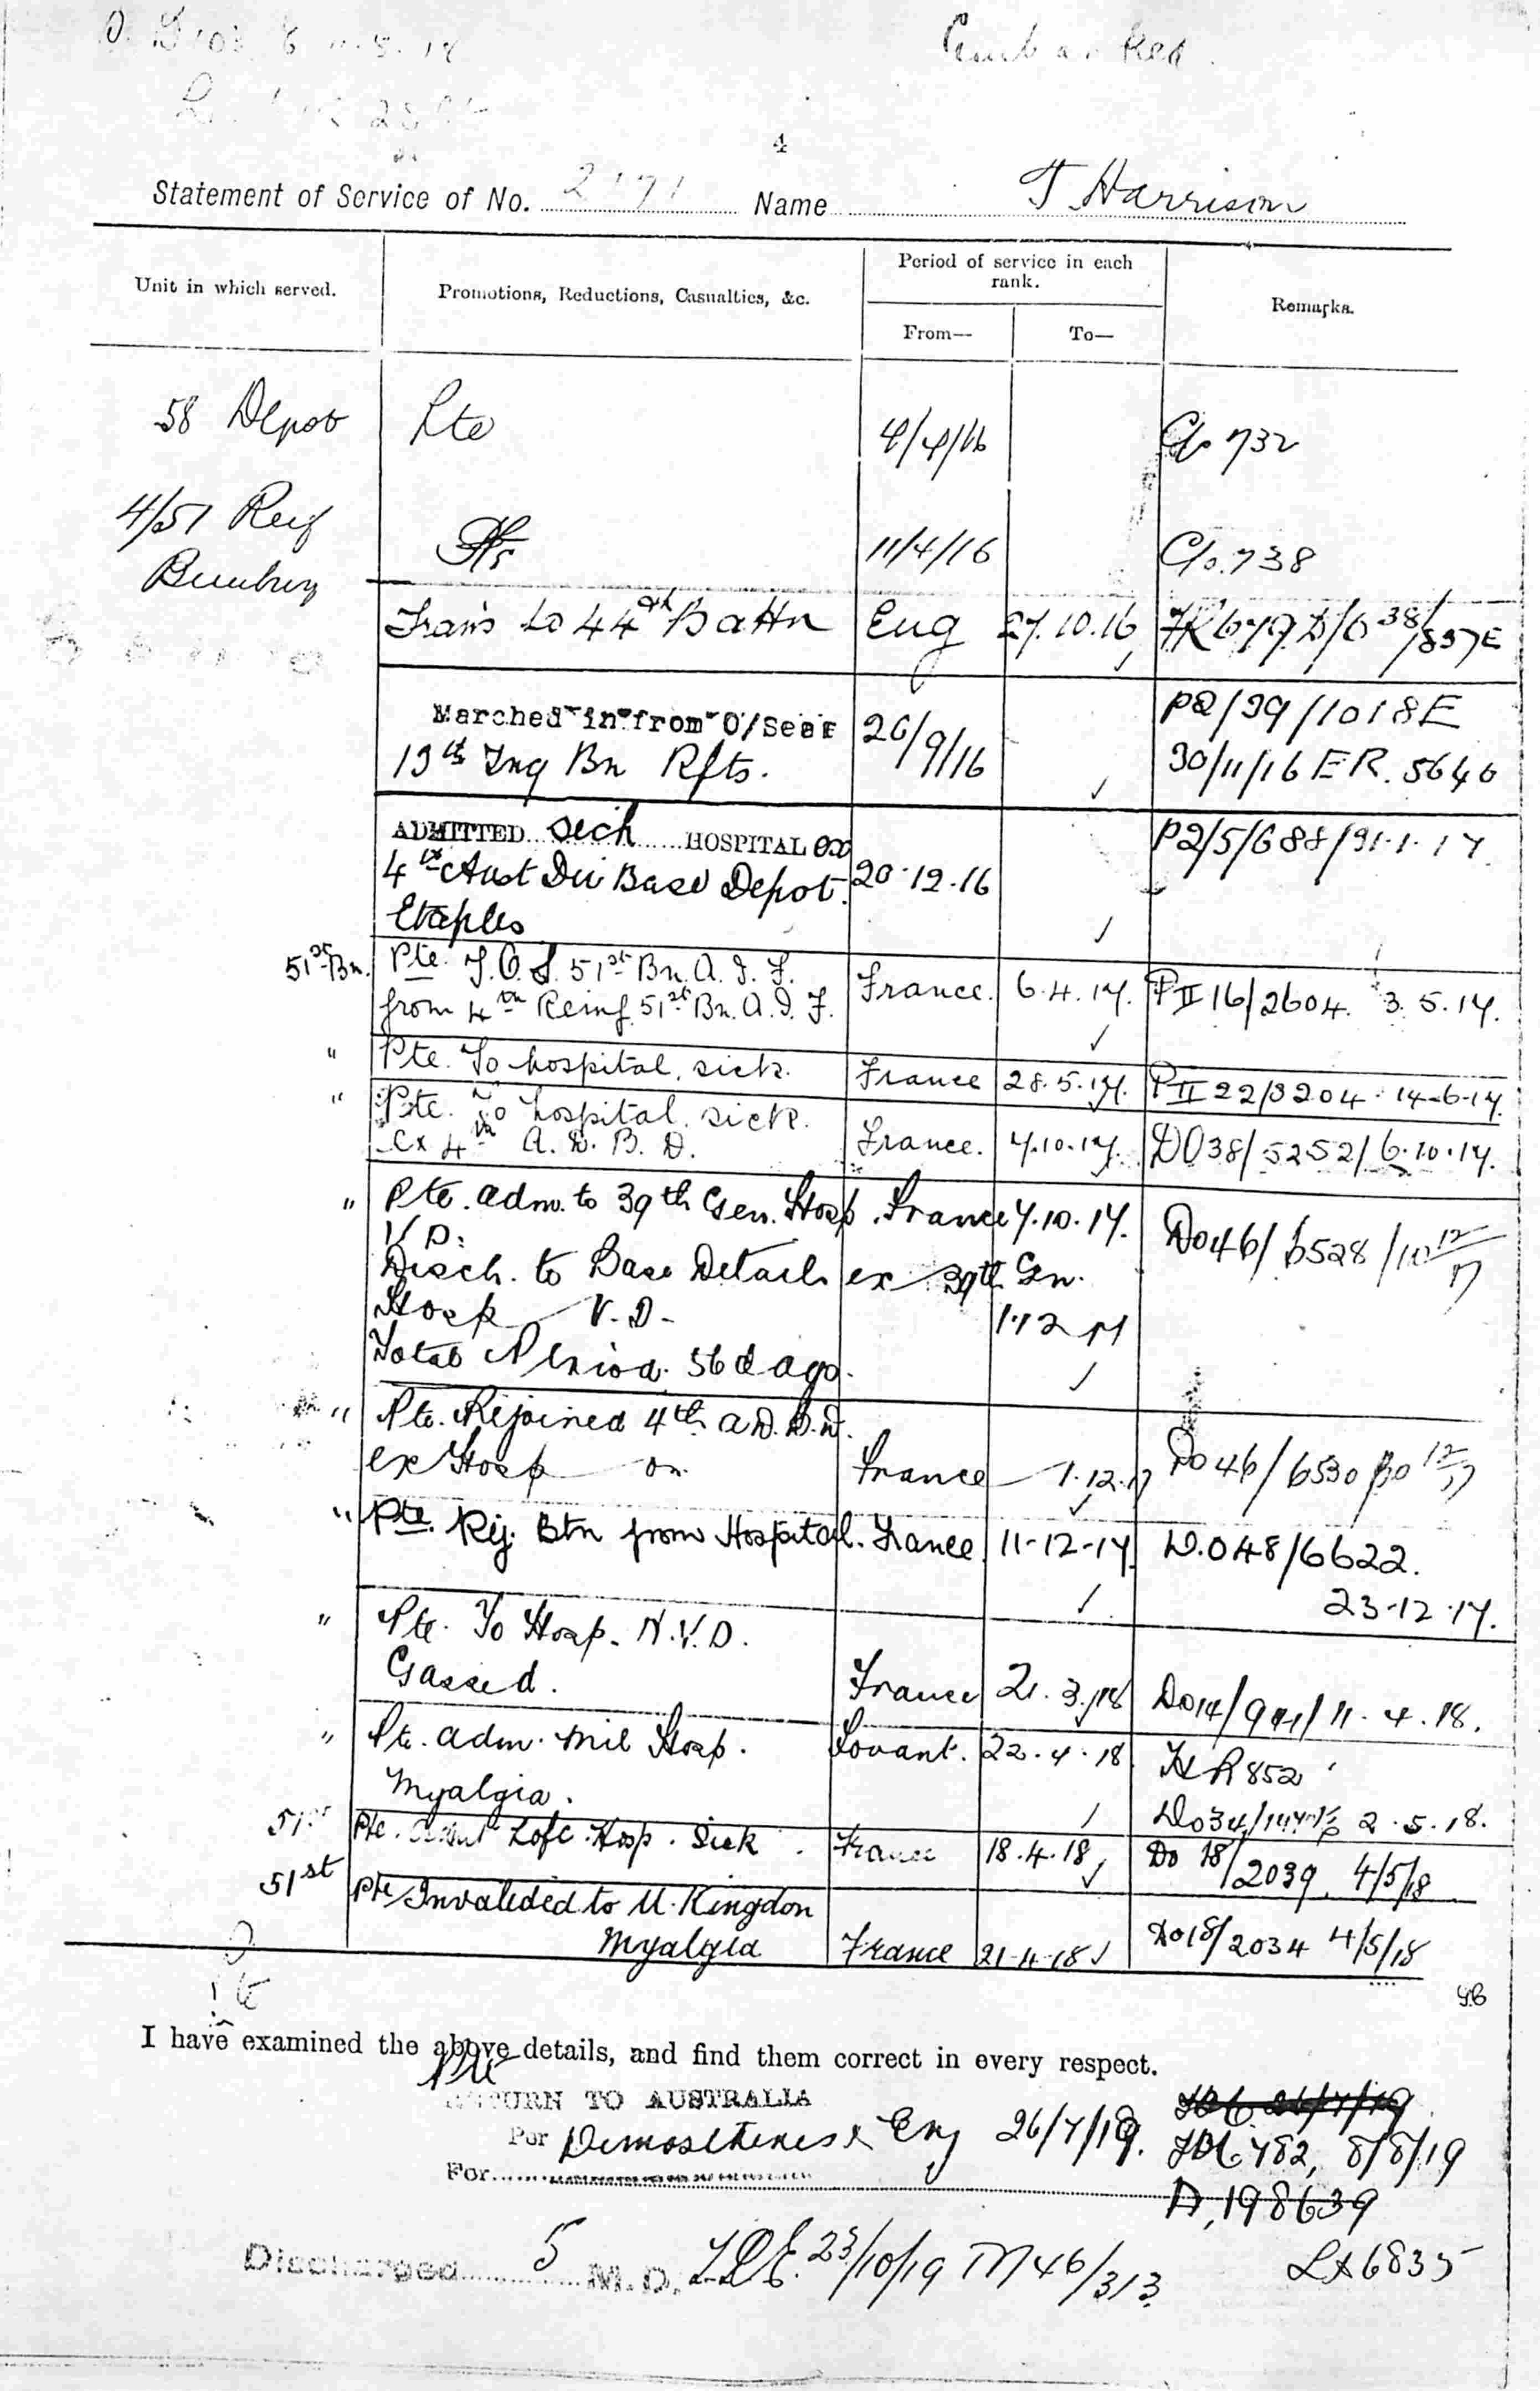 Embarked
4
Statement of Service of No. 2171 Name T Harrison
Unit in which served. Promotions, Reductions, Casualties, &c. Period of service in each rank. From— To— Remarks.
58 Depot Pte 4/4/16 C/o 732
4/51 Reif 11/4/16 C/o. 738
Bunbury
Trans to 44th Battn Eng 27.10.16 D/O 38/1837E
Marched in from O/Seas 26/9/16 P2/39/1018E
13th Tng Bn Rfts. 30/11/16 ER. 5646
ADMITTED sick HOSPITAL ex P2/5/688/31.1.17
4th Aust Div Base Depot. 20.12.16
Etaples
51st Bn. Pte. T.O.S. 51st Bn. A.I.F. France. 6.4.17. PII 16/2604. 3.5.17.
from 4th Reinf. 51st Bn. A.I.F.
" Pte. To hospital, sick. France 28.5.17. PII 22/3204. 14-6-17.
" Pte. To hospital, sick.
ex 4th A.D.B.D. France. 7.10.17. DO38/5252/6.10.17.
" Pte. adm. to 39th Gen. Hosp. France 7.10.17. Do46/6528/10 12/17
V.D.
Disch. to Base Details ex 39th Gen.
Hosp V.D. 1.12.17
Total Period 56 days.
" Pte. Rejoined 4th A.D.B.D.
ex Hosp on France 1.12.17 Do 46/6530/10 12/17
" Pte. Rej. Btn from Hospital. France 11-12-17 D.O48/6622.
23-12-17.
" Pte. To Hosp. N.Y.D.
Gassed. France 21.3.18 Do14/941/11.4.18.
" Pte. adm. Mil Hosp. 22.4.18 HR852
Myalgia. 2.5.18.
51st Pte. Hosp. Sick. France 18.4.18 Do 18/2039. 4/5/18
51st Pte Invalided to U. Kingdon
Myalgia France 21-4-18 Do18/2034 4/5/18
I have examined the above details, and find them correct in every respect.
RETURN TO AUSTRALIA
Per Demosthenes Ex Eng 26/7/19. 482, 8/8/19
For
A, 198639
Discharged 5 M.D. 23/10/19 M46/313 LX6835